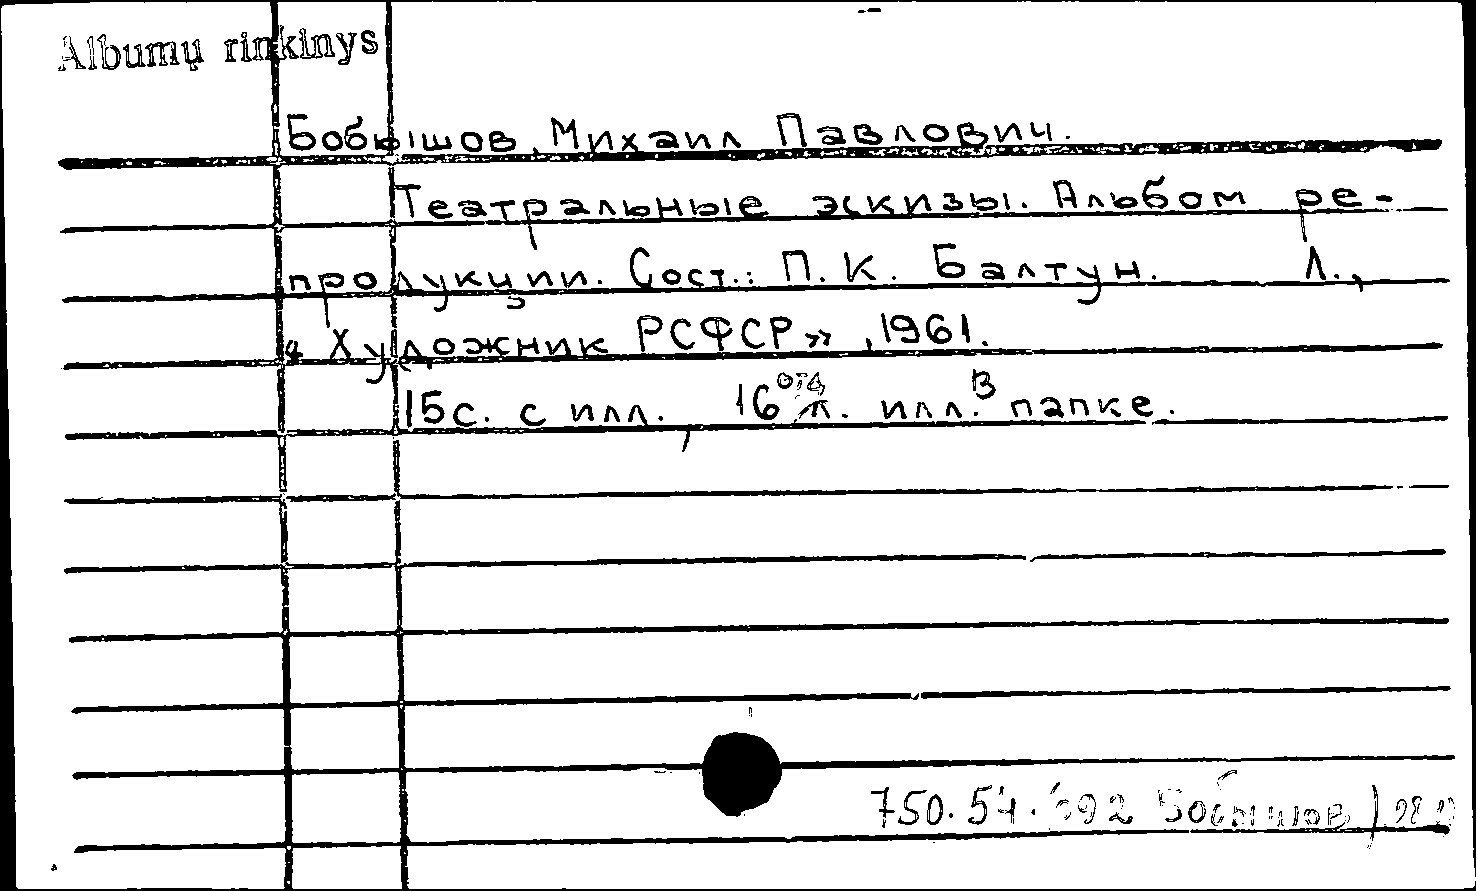 Albumų rinkinys
Бобышов, Михаил Павлович.
Театральные эскизы. Альбом ре-
продукции. Сост.: П. К. Балтун. Л.,
«Художник РСФСР», 1961.
15с. с илл., 16 отд. л. илл. в папке.
750.54. Бобышов